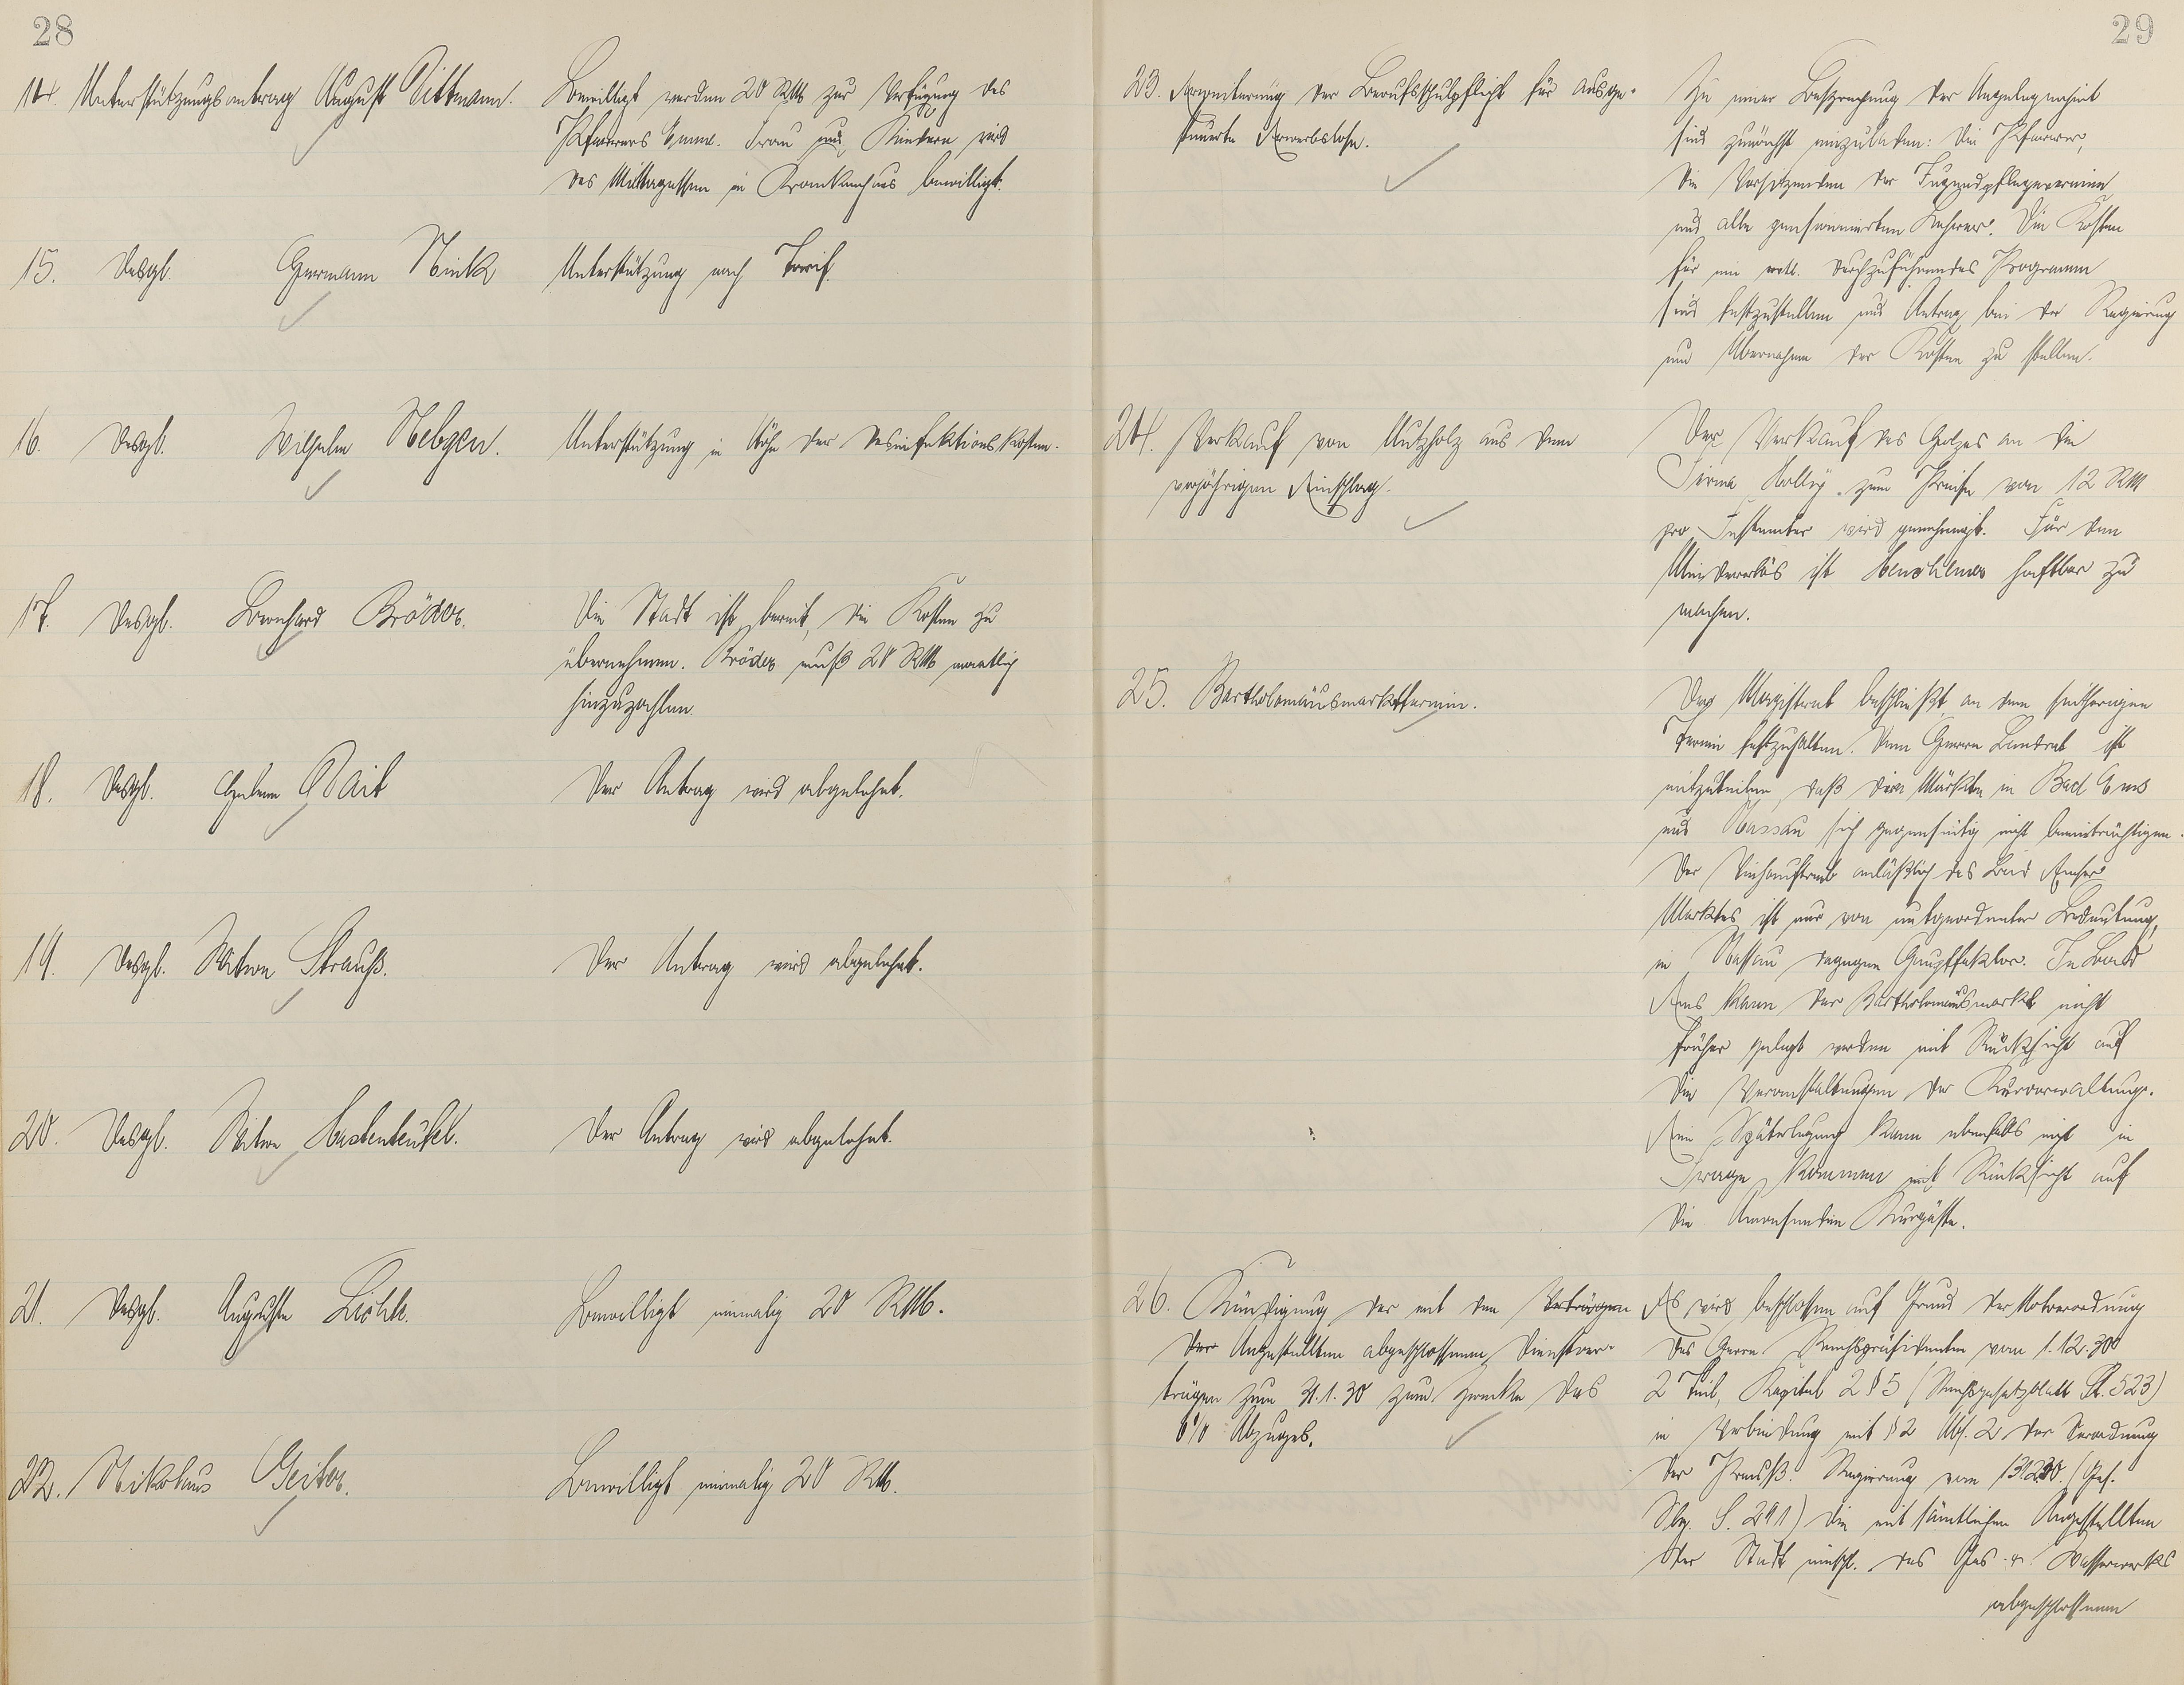 28
14. Unterstützungsantrag August Dittmann.
Bewilligt werden 20 RM zur Verfügung des
Pfarrers Emme. Frau und Kindern wird
das Mittagessen im Krankenhaus bewilligt.
15. Desgl. Hermann Nink
Unterstützung nach Tarif.
16. Desgl. Wilhelm Nebgen.
Unterstützung in Höhe der Desinfektionskosten.
17. Desgl. Bernhard Bröder.
Die Stadt ist bereit, die Kosten zu
übernehmen. Bröder muß 20 RM monatlich
hinzuzahlen.
18. Desgl.
Der Antrag wird abgelehnt.
19. Desgl. Witwe Strauß.
Der Antrag wird abgelehnt.
20. Desgl. Witwe
Der Antrag wird abgelehnt.
21. Desgl. Auguste
Bewilligt einmalig 20 RM.
22. Nikolaus Geiter.
Bewilligt einmalig 20 RM.
29
23. Erweiterung der Berufsschulpflicht für ausge-
steuerte Erwerbslose.
Zu einer Besprechung der Angelegenheit
sind zunächst einzuladen: Die Pfarrer,
die Vorsitzenden der Jugendpflegevereine
und alle pensionierten Lehrer. Die Kosten
für ein evtl. durchzuführendes Programm
sind festzustellen und Antrag bei der Regierung
um Übernahme der Kosten zu stellen.
24. Verkauf von Nutzholz aus dem
vorjährigen Einschlag.
Der Verkauf des Holzes an die
Firma zum Preise von 12 RM
pro Festmeter wird genehmigt. Für den
Mindererlös ist haftbar zu
machen.
25. Bartholomäusmarkttermin.
Der Magistrat beschließt an dem seitherigen
Termin festzuhalten. Dem Herrn Landrat ist
mitzuteilen, daß die Märkte in Bad Ems
und Nassau sich gegenseitig nicht beeinträchtigen.
Der Viehauftrieb anläßlich des Bad Emser
Marktes ist nur von untergeordneter Bedeutung,
in Nassau dagegen Hauptfaktor. In Bad
Ems kann der Bartholomäusmarkt nicht
früher gelegt werden mit Rücksicht auf
die Veranstaltungen der Kurverwaltung.
Eine Späterlegung kann ebenfalls nicht in
Frage kommen mit Rücksicht auf
die anwesenden Kurgäste.
26. Kündigung der mit den Verträgen
der Angestellten abgeschlossenen Dienstver-
trägen zum 31.1.30 zum Zwecke des
6% Abzuges.
Es wird beschlossen auf Grund der Notverordnung
des Herrn Reichspräsidenten vom 1.12.30
2 Teil, Kapitel 2 § 5 (Reichsgesetzblatt S. 523)
in Verbindung mit § 2 Abs. 2 der Verordnung
der Preuß. Regierung vom (Ges.
Slg. S. 291) die mit sämtlichen Angestellten
der Stadt einschl. des Gas- u. Wasserwerks
abgeschlossenen